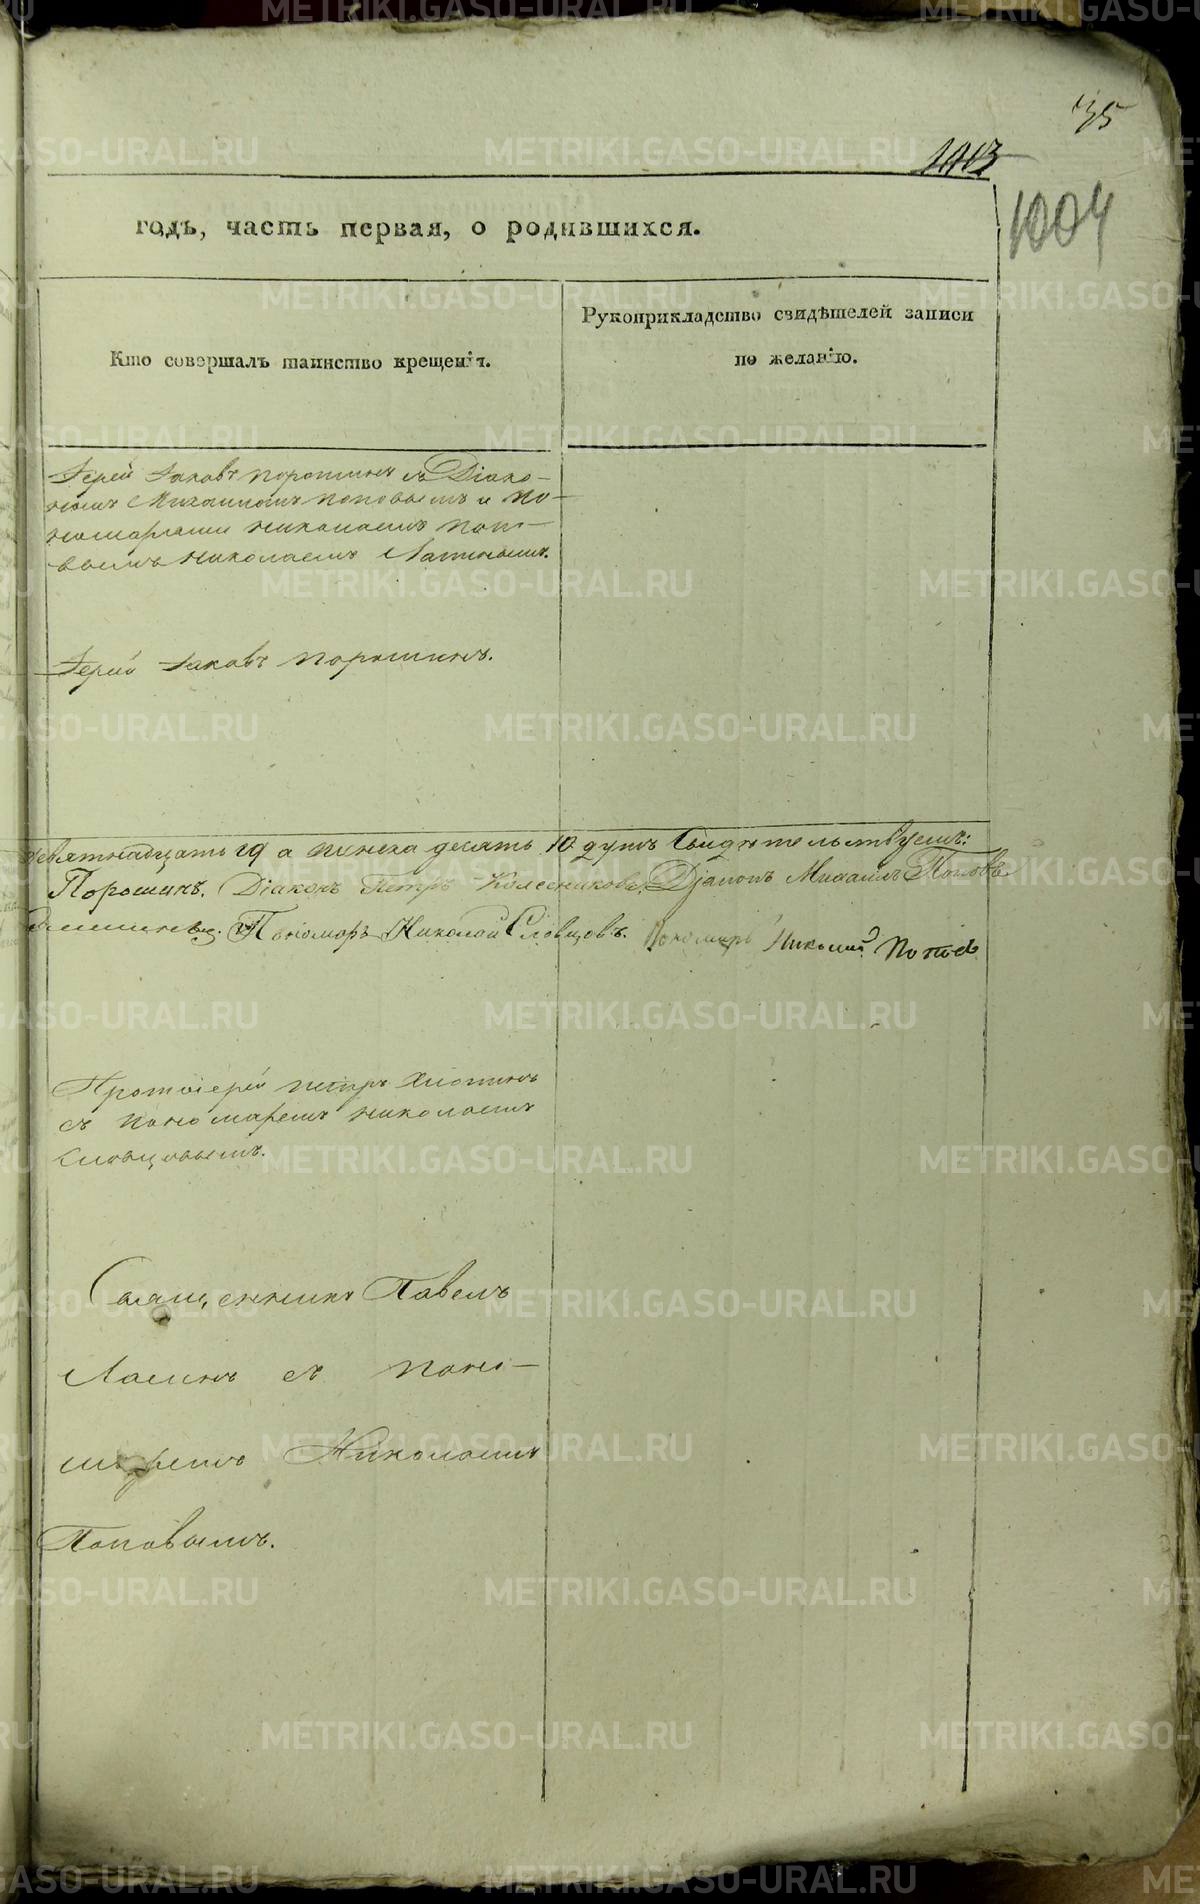 35
1013
1004
годъ, часть первая, о родившихся.
Кто совершалъ таинство крещенія.
Рукоприкладство свидѣтелей записи
по желанію.
Іерей Іаковъ Порошинъ съ Діако-
номъ Михаиломъ Поповымъ и По-
номарями Николаемъ Попо-
вымъ Николаемъ
Іерей Іаковъ Порошинъ.
девятнадцать 19 а женска десять 10 душъ Свидѣтельствуемъ:
Порошинъ. Діаконъ Петръ Колесниковъ, Діаконъ Михаилъ Поповъ
Пономарь Николай Словцовъ. Пономарь Николай Поповъ
Протоіерей Петръ
съ Пономаремъ Николаемъ
Словцовымъ.
Священникъ Павелъ
съ Поно-
маремъ Николаемъ
Поповымъ.
METRIKI.GASO-URAL.RU